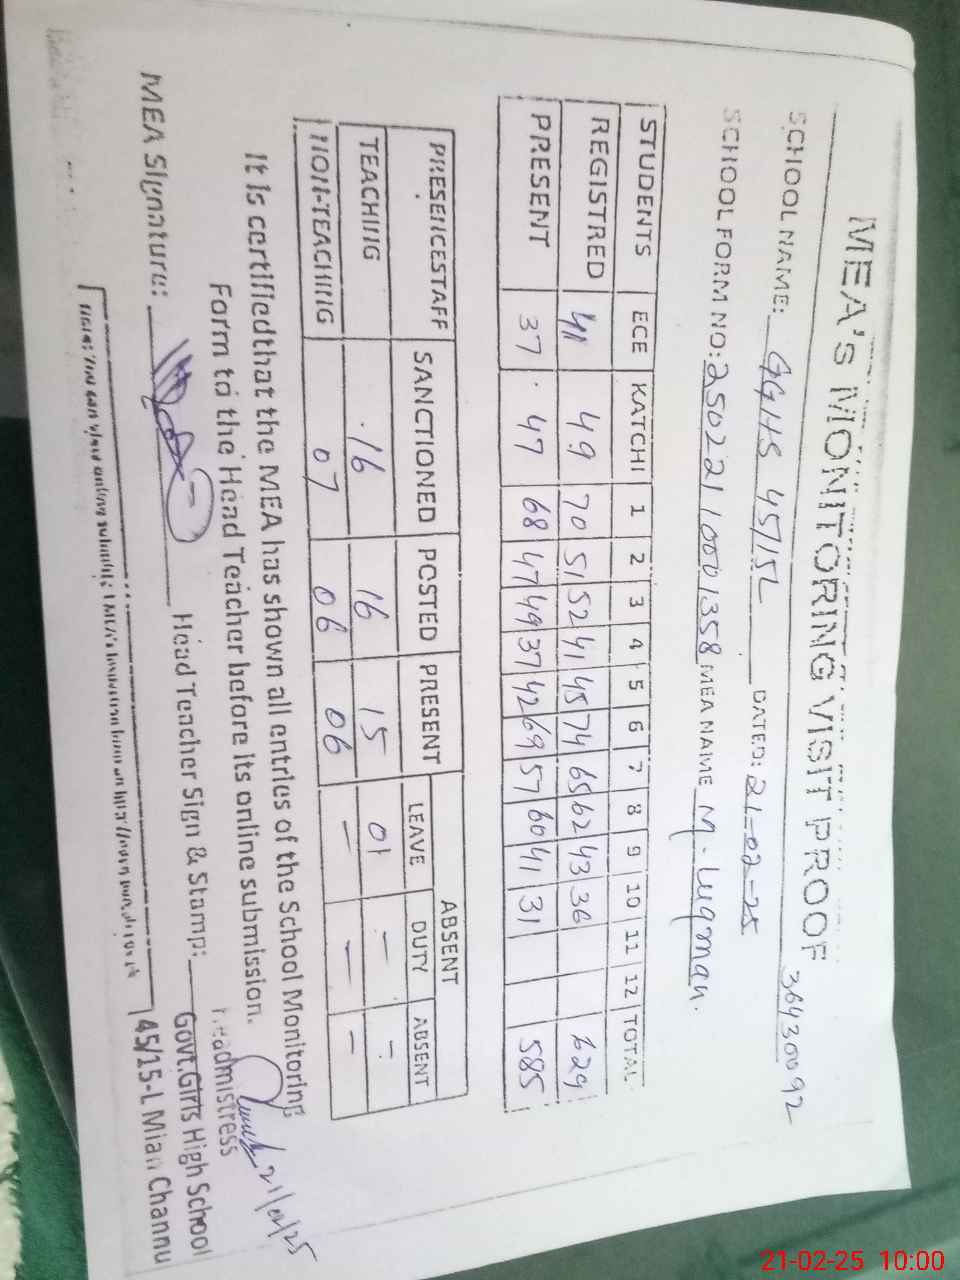 MEA'S MONITORING VISIT PROOF
36430092
SCHOOL NAME: GGHS 45/15L DATED: 21-02-25
SCHOOL FORM NO: 25022110001358 MEA NAME M. Luqman.
STUDENTS ECE KATCHI 1 2 3 4 5 6 7 8 9 10 11 12 TOTAL
REGISTRED 41 49 70 51 52 41 45 74 65 62 43 36 629
PRESENT 37 47 68 47 49 37 42 69 57 60 41 31 585
PRESENCESTAFF SANCTIONED POSTED PRESENT ABSENT
LEAVE DUTY ABSENT
TEACHING 16 16 15 01 - -
NON-TEACHING 07 06 06 - - -
It is certifiedthat the MEA has shown all entries of the School Monitoring
Form to the Head Teacher before its online submission.
21/02/25
MEA Signature: Head Teacher Sign & Stamp:
Headmistress
Govt.Girls High School
45/15-L Mian Channu
21-02-25 10:00